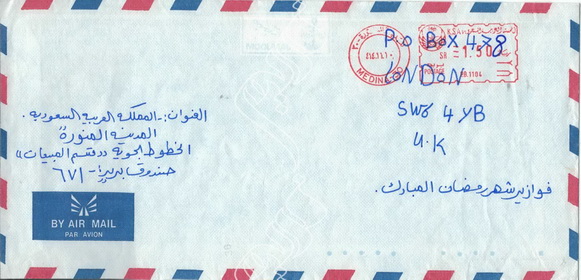 P.O BOX 478
LONDON
SW6 4YB
U.K
K.S.A
SR 1.50
POSTAGE
PB.1104
MEDINA
العنوان:- المملكة العربية السعودية.
المدينة المنورة
الخطوط الجوية «قسم المبيعات»
صندوق بريد:- ٦٧١
فوازير شهر رمضان المبارك.
BY AIR MAIL
PAR AVION